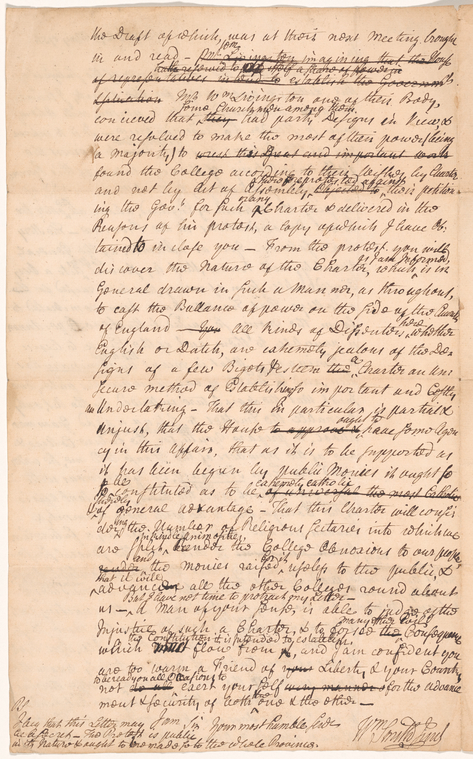 the Draft of which, was at their next Meeting brought
in and read — some imagining that the House
of representatives
Mr Wm Livingston one of their Body,
some Churchmen among them
conceived that they had party Designs in View, &
were resolved to make the most of their power (being
a majority) to wrest this Great and important work
found the College according to their by Charter
and not by Act of Assembly, protested against their petition-
ing the Govr. for such a Charter & delivered in the
Reasons of his protest, a copy of which I have ob-
tained to inclose you — From the protest you will
as I am Informed,
discover the Nature of the Charter, which is in
General drawn in such a Manner, as throughout,
to cast the Ballance of power on the side of the Church
of England — All kinds of Dissenters here whether
English or Dutch, are extremely jealous of the De-
signs of a few Bigots & esteem the Charter an un-
secure method of Establishing so important and Costly
an Undertaking — That this in particular is partial &
ought to
Unjust, that the House to approve & have some Agen-
cy in this affair, that as it is to be supported as
it has been begun by public Monies it ought so
to be extremely catholic
constituted as to be of universal the most Catholic
& thereby
of general advantage — That this Charter will consi-
dering the Number of Religious sectaries into which we
are split render the College obnoxious to our
and
render the monies raised useless to the public, &
that it will
advance all the other Colleges round about
But I have not time to protract my Letter —
us — A man of your sense, is able to judge of the
many other Evils
Injustice of such a Charter, & to the Consequences
the Constitution it is intended to establish,
which must flow from & I am confident you
are too warm a Friend of your Liberty, & your Country
already on all Occasions to
not to exert yourself for the advance
ment & security of both one & the other —
I pray that this Letter may
be a Secret — The Protest is public
in its Nature & ought to be made so to the whole Province.
I am, Sir, Your most humble Servt
Wm